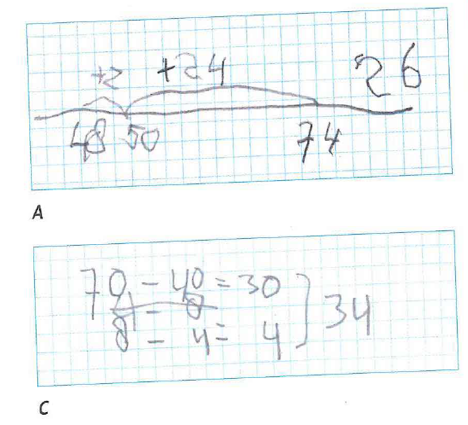 +2 +24 26
48 50 74
A
70 - 40 = 30
4 - 8
8 - 4 = 4
34
C